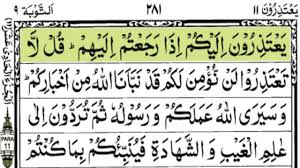 يَعْتَذِرُوْنَ ١١ ٢٨١ اَلتَّوْبَة ٩
يَعْتَذِرُوْنَ اِلَيْكُمْ اِذَا رَجَعْتُمْ اِلَيْهِمْ ؕ قُلْ لَّا
تَعْتَذِرُوْا لَنْ نُّؤْمِنَ لَكُمْ قَدْ نَبَّاَنَا اللّٰهُ مِنْ اَخْبَارِكُمْ ؕ
وَسَيَرَى اللّٰهُ عَمَلَكُمْ وَرَسُوْلُهٗ ثُمَّ تُرَدُّوْنَ اِلٰى
عٰلِمِ الْغَيْبِ وَالشَّهَادَةِ فَيُنَبِّئُكُمْ بِمَا كُنْتُمْ
PARA
11